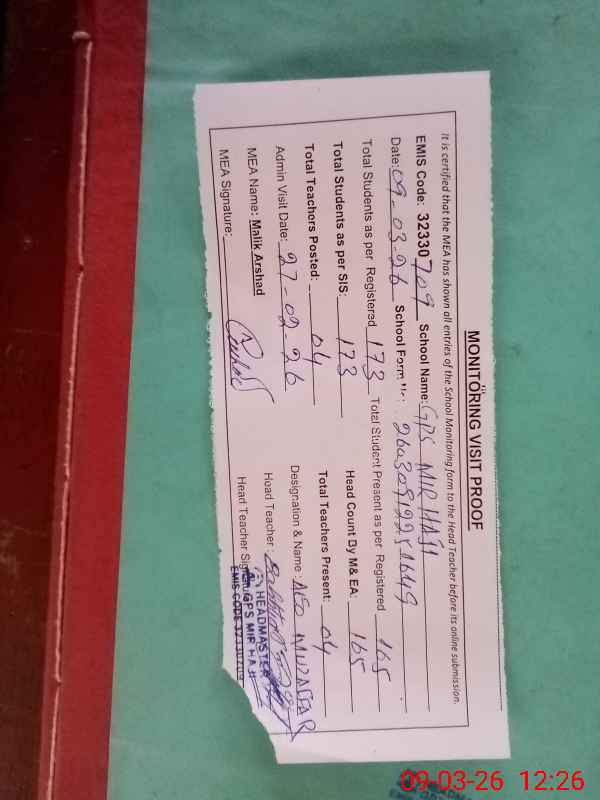 MONITORING VISIT PROOF
It is certified that the MEA has shown all entries of the School Monitoring form to the Head Teacher before its online submission.
EMIS Code: 32330709 School Name: GPS MIR HAJI
Date: 09-03-26 School Form No: 26030912251649
Total Students as per Registered 173 Total Student Present as per Registered 165
Total Students as per SIS: 173 Head Count By M& EA: 165
Total Teachers Posted: 04 Total Teachers Present: 04
Admin Visit Date: 27-02-26 Designation & Name: AEO MUZAFFAR
MEA Name: Malik Arshad Head Teacher:
MEA Signature: Head Teacher Sign
HEADMASTER
GPS MIR HAJI
EMIS CODE 32330709
09-03-26 12:26